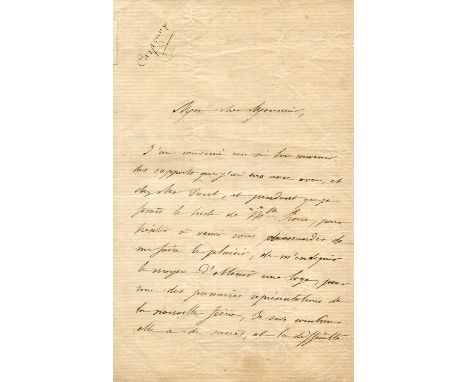 Carpeaux
Mon cher Monsieur,
J'ai conservé un si bon souvenir
des rapports que j'ai eus avec vous, et
chez M. Duret, et pendant que je
faisais le buste de Mlle
à venir vous demander de
me faire le plaisir, de m'indiquer
le moyen d'obtenir une loge, pour
une des premières représentations de
la nouvelle féerie, Je sais combien
elle a de succès, et la difficulté